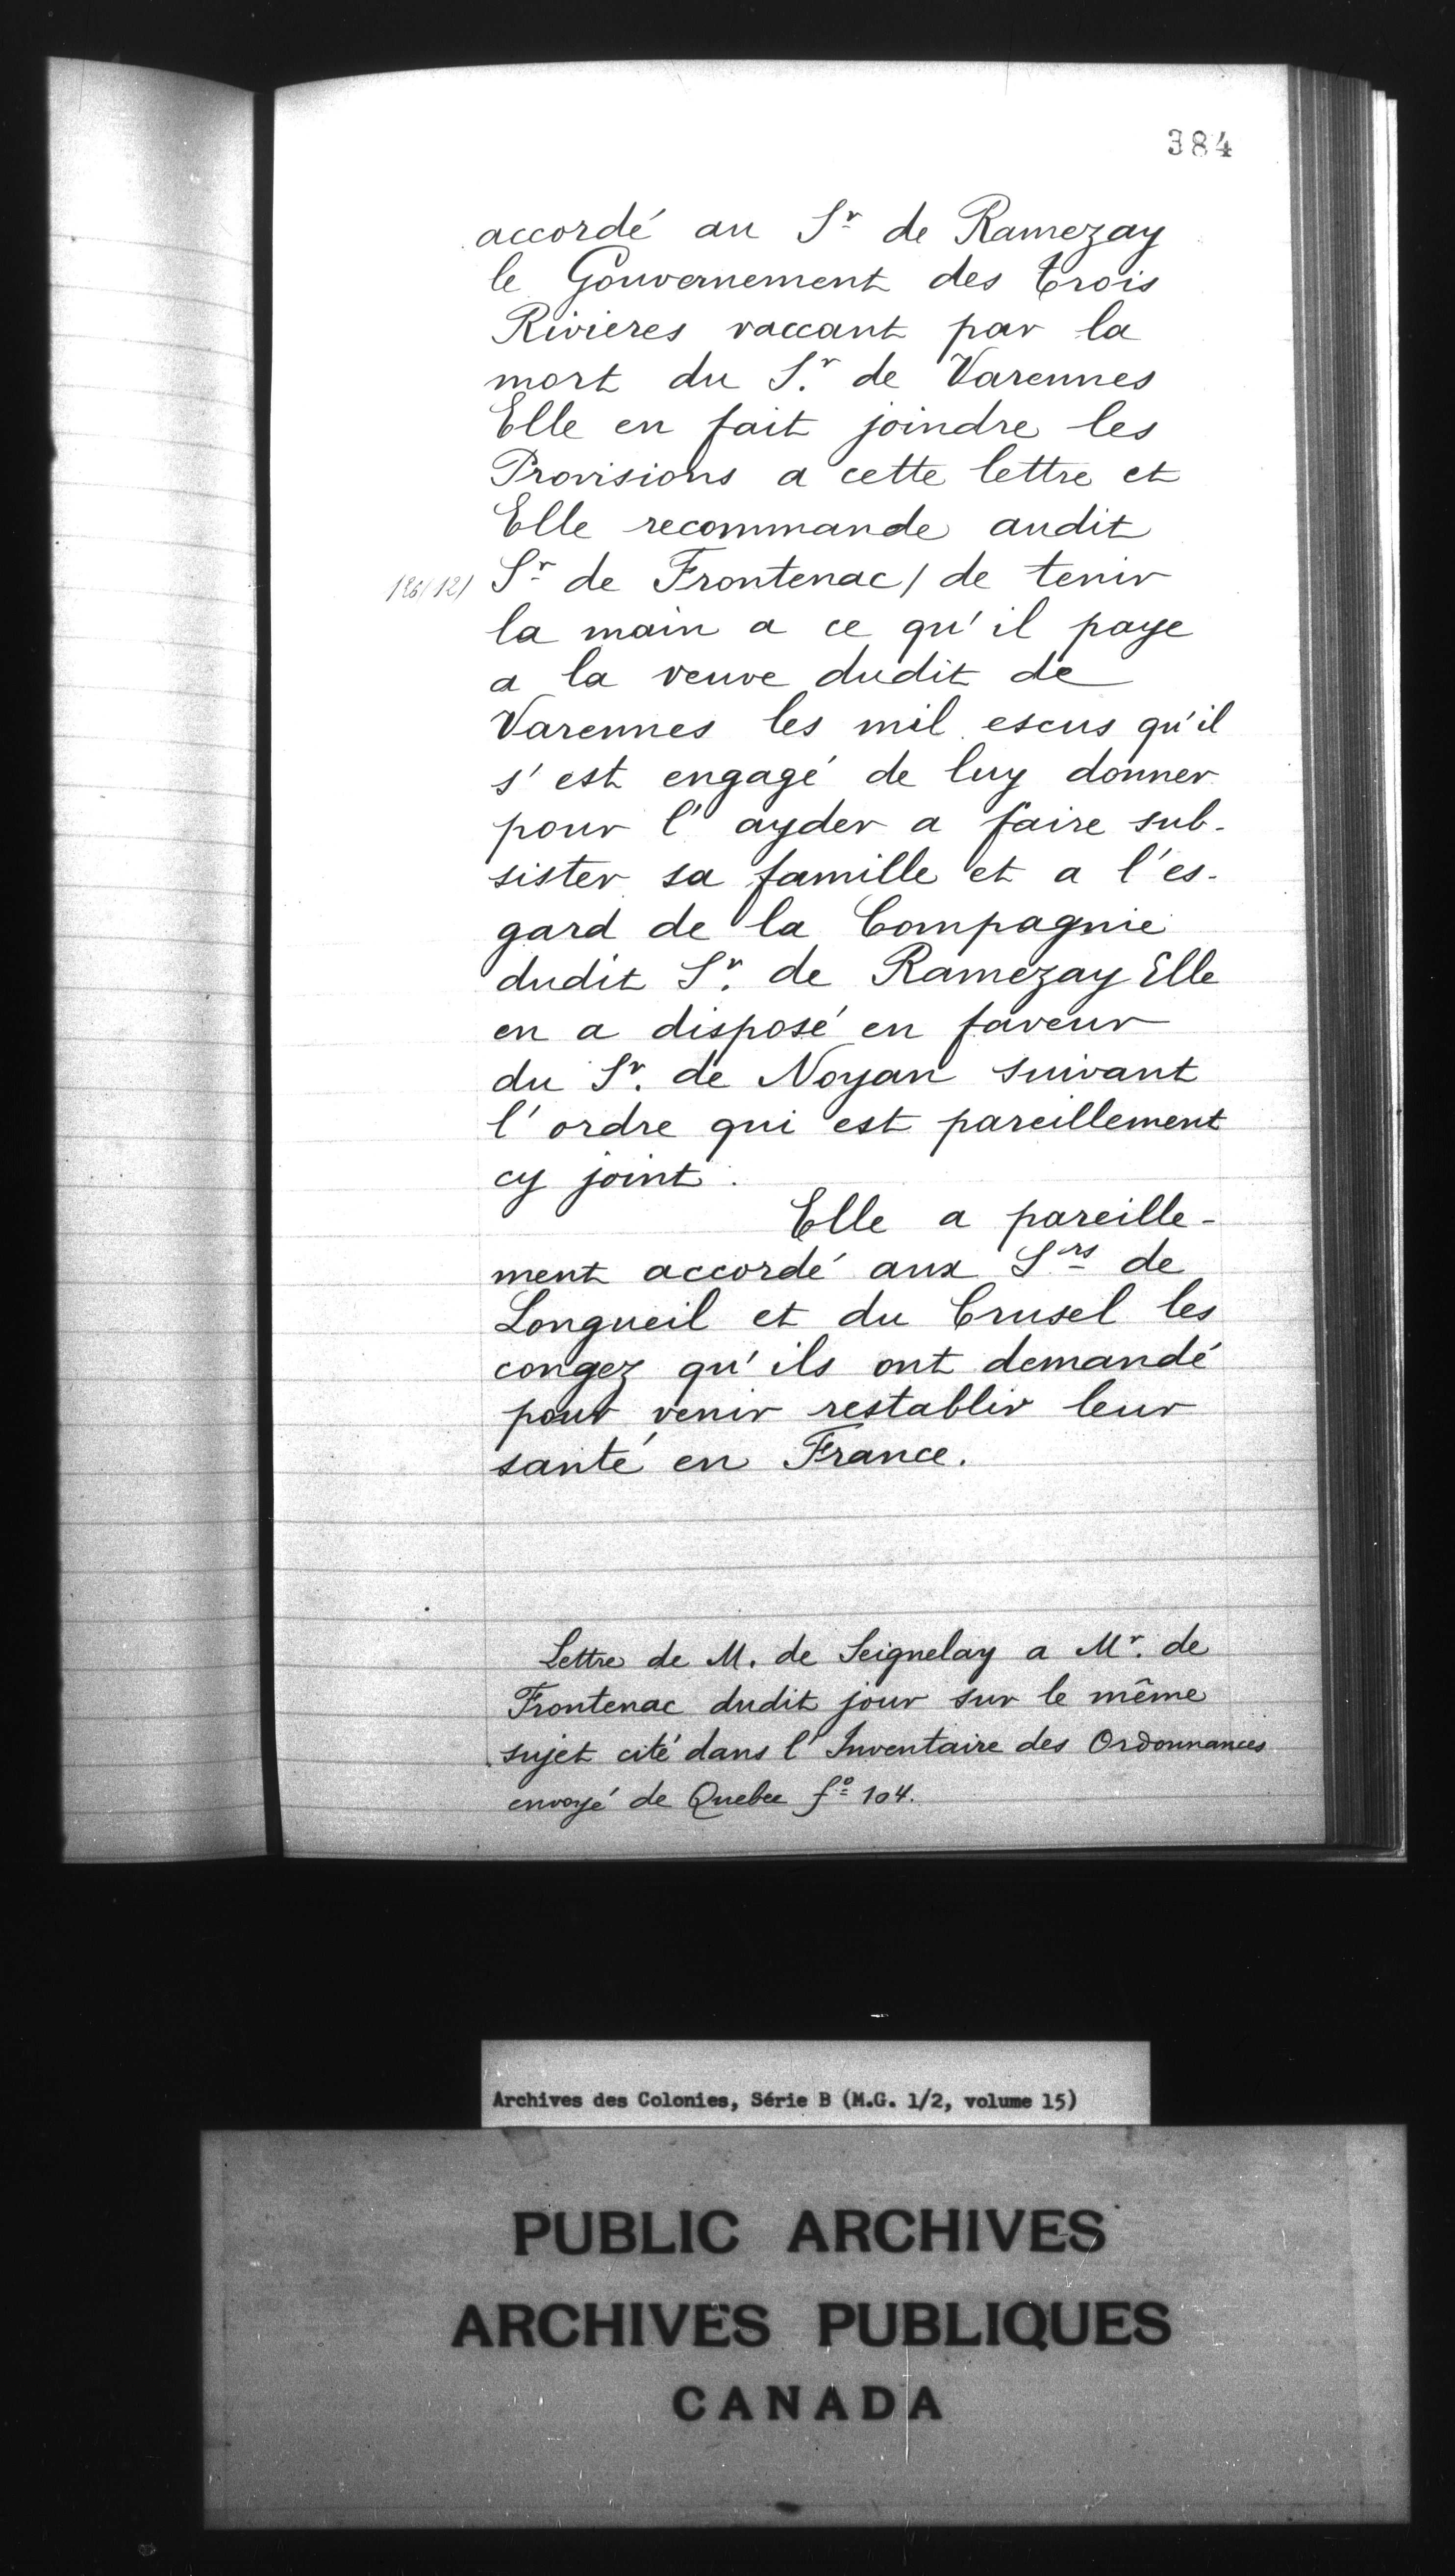 384
accordé au Sr de Ramezay
le Gouvernement des trois
Rivieres vaccant par la
mort du Sr. de Varennes
Elle en fait joindre les
Provisions a cette lettre et
Elle recommande audit
Sr de Frontenac / de tenir
la main a ce qu'il paye
a la veuve dudit de
Varennes les mil escus qu'il
s'est engagé de luy donner
pour l'ayder a faire sub-
sister sa famille et a l'es-
gard de la Compagnie
dudit Sr. de Ramezay Elle
en a disposé en faveur
du Sr. de Noyan suivant
l'ordre qui est pareillement
cy joint.
Elle a pareille-
ment accordé aux Srs de
Longueil et du Crusel les
congez qu'ils ont demandé
pour venir restablir leur
santé en France.
Lettre de M. de Seignelay a Mr. de
Frontenac dudit jour sur le même
sujet cité dans l'Inventaire des Ordonnances
envoyé de Quebec fo 104.
Archives des Colonies, Série B (M.G. 1/2, volume 15)
PUBLIC ARCHIVES
ARCHIVES PUBLIQUES
CANADA